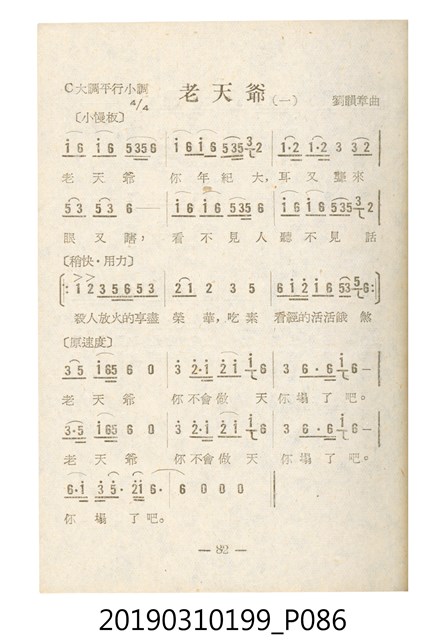 C大調平行小調
4/4
老天爺(一)
劉顥章曲
〔小慢板〕
i 6 i 6 5356 | i6i6 535 3/2 | 1·2 1·2 3 332
老 天 爺 你 年 紀 大, 耳 又 聾 來
53 53 6 — | i6 i6 5356 | i6 i6 535 3/2
眼 又 瞎, 看 不 見 人 聽 不 見 話
〔稍快·用力〕
1235653 | 2 1 2 3 5 | 6 i 2 i 6 53 5/6
殺人放火的享盡 榮 華, 吃 素 看經的活活餓 煞
〔原速度〕
35 i65 6 0 | 3 2·i 2 i 6 | 3 6·6 i/6 —
老 天 爺 你 不會做 天 你 塌 了 吧。
3·5 i65 6 0 | 3 2·i 2 i 6 | 3 6·6 i/6 —
老 天 爺 你 不會做 天 你 塌 了 吧。
6·i 35·2i6· | 6 0 0 0
你 塌 了吧。
— 82 —
20190310199_P086